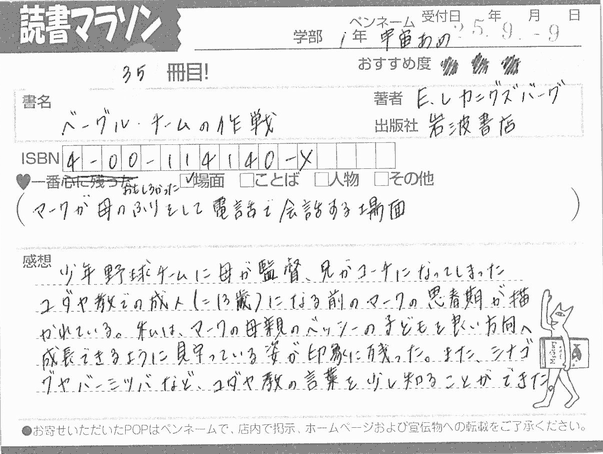 読書マラソン
学部 1年 ペンネーム 宇宙あめ 受付日 25年9月-9日
35 冊目!
おすすめ度
書名 ベーグル・チームの作戦
著者 E.L カニグズバーグ
出版社 岩波書店
ISBN 4-00-114140-X
♥一番心に残った おもしろかった ☑場面 □ことば □人物 □その他
(マークが母のふりをして電話で会話する場面)
感想
少年野球チームに母が監督、兄がコーチになってしまった
ユダヤ教での成人(=13歳)になる前のマークの思春期が描
かれている。私は、マークの母親のベッシーの子どもを良い方向へ
成長できるように見守っている姿が印象に残った。また、シナゴ
グやバーミツバなど、ユダヤ教の言葉を少し知ることができた。
●お寄せいただいたPOPはペンネームで、店内で掲示、ホームページおよび宣伝物への転載をご了承ください。